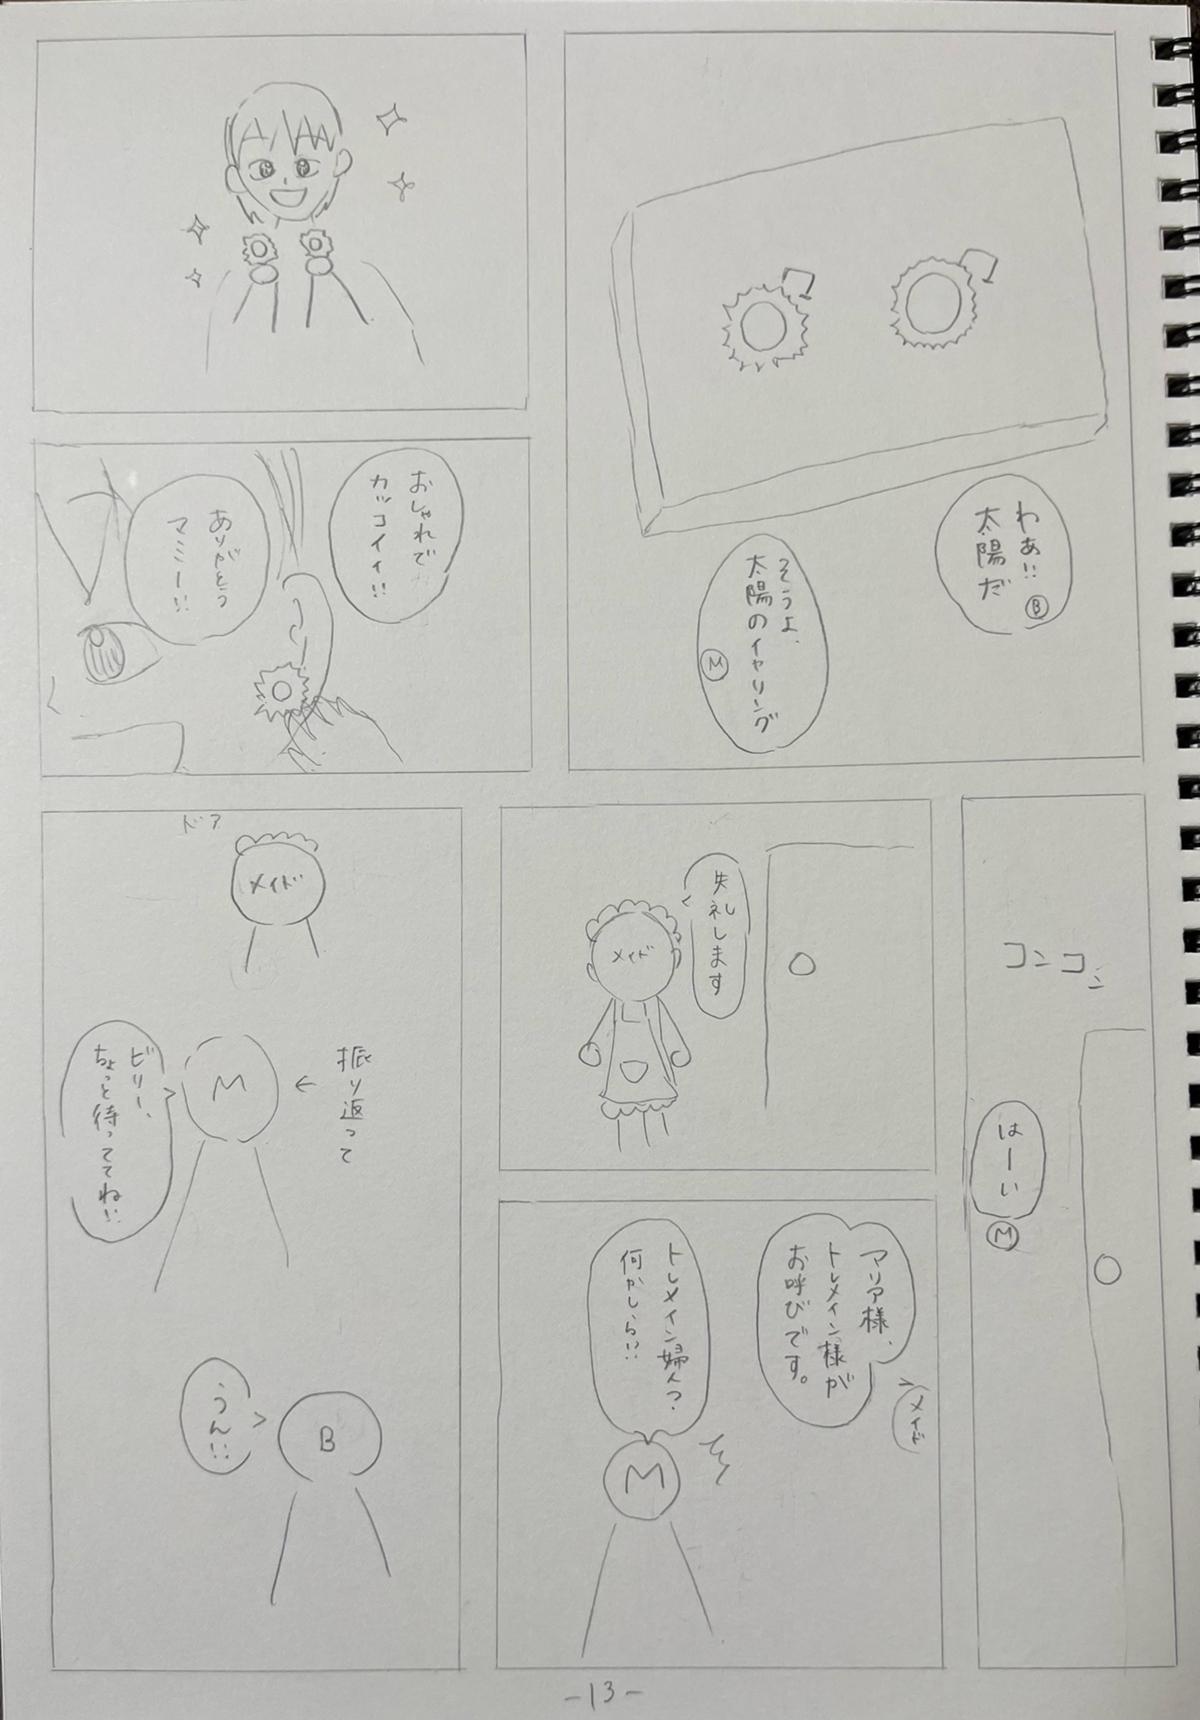 わぁ!!
太陽だ
B
そうよ、
太陽のイヤリング
M
おしゃれで
カッコイイ!!
ありがとう
マミー!!
コンコン
はーい
M
失礼します
メイド
マリア様、
トレメイン様が
お呼びです。
メイド
トレメイン婦人?
何かしら!!
M
ドア
メイド
振り返って
←
M
ビリー、
ちょっと待っててね!!
うん!!
B
-13-